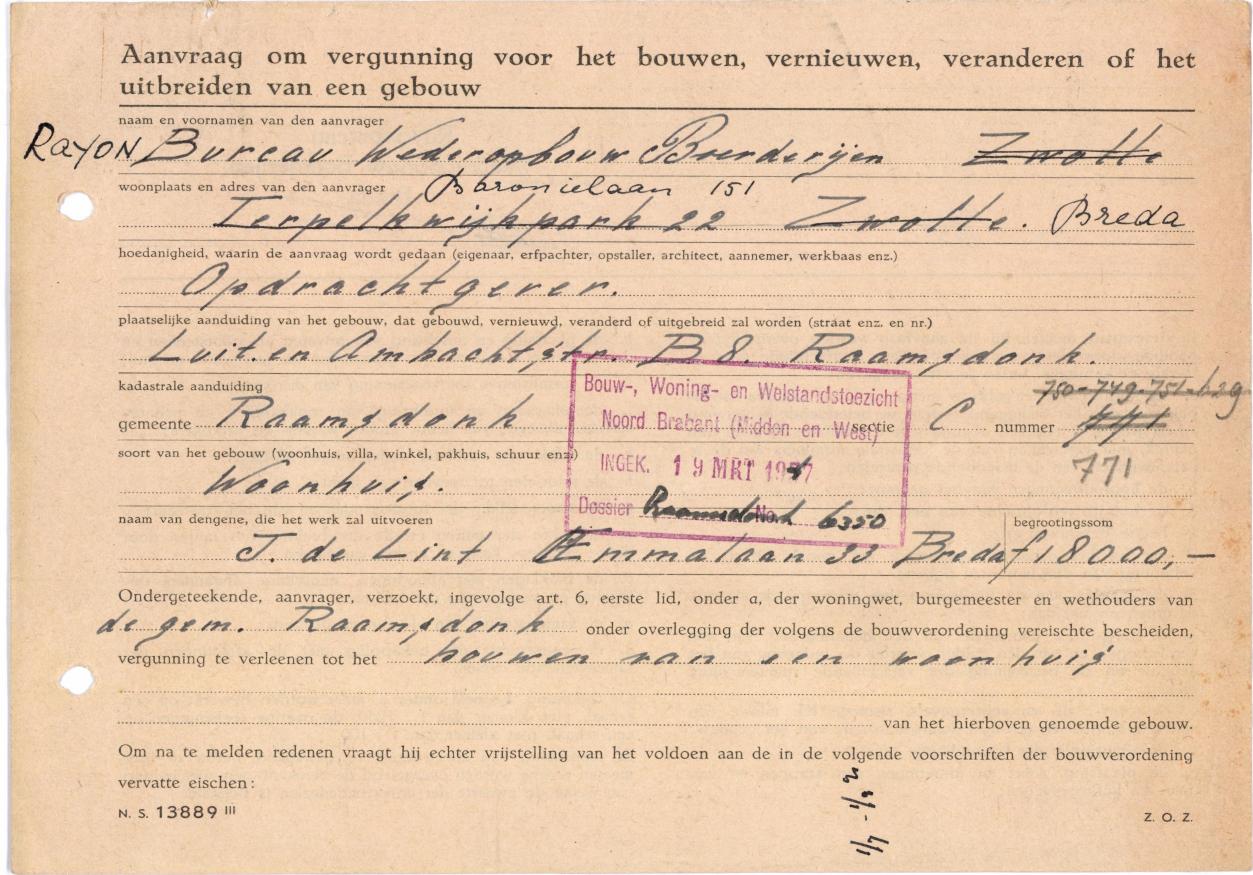 Aanvraag om vergunning voor het bouwen, vernieuwen, veranderen of het
uitbreiden van een gebouw
naam en voornamen van den aanvrager
Rayon Bureau Wederopbouw Boerderijen Zwolle
woonplaats en adres van den aanvrager Baronielaan 151
Terpelkwijkpark 22 Zwolle. Breda
hoedanigheid, waarin de aanvraag wordt gedaan (eigenaar, erfpachter, opstaller, architect, aannemer, werkbaas enz.)
Opdrachtgever.
plaatselijke aanduiding van het gebouw, dat gebouwd, vernieuwd, veranderd of uitgebreid zal worden (straat enz. en nr.)
Luit. en Ambachtstr. B 8. Raamsdonk.
kadastrale aanduiding 750-749-751-629
gemeente Raamsdonk sectie C nummer 771
soort van het gebouw (woonhuis, villa, winkel, pakhuis, schuur enz.) 771
Woonhuis.
Bouw-, Woning- en Welstandstoezicht
Noord Brabant (Midden en West)
INGEK. 19 MRT 1947
Dossier Raamsdonk No. 6350
naam van dengene, die het werk zal uitvoeren begrootingssom
J. de Lint Emmalaan 33 Breda f 18000,—
Ondergeteekende, aanvrager, verzoekt, ingevolge art. 6, eerste lid, onder a, der woningwet, burgemeester en wethouders van
de gem. Raamsdonk onder overlegging der volgens de bouwverordening vereischte bescheiden,
vergunning te verleenen tot het bouwen van een woonhuis
van het hierboven genoemde gebouw.
Om na te melden redenen vraagt hij echter vrijstelling van het voldoen aan de in de volgende voorschriften der bouwverordening
vervatte eischen:
N. S. 13889 III Z. O. Z.